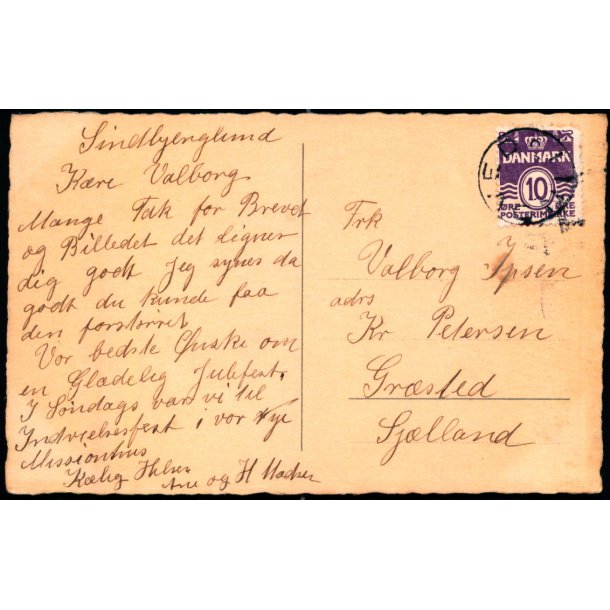 Sindbjerglund
Kære Valborg
Mange Tak for Brevet
og Billedet det ligner
dig godt Jeg synes da
godt du kunde faa
den forstörret
Vor bedste Ønske om
en Glædelig Julefest.
I Söndags var vi til
Indvielsesfest i vor Nye
Missionhus
Kælig Hilsen
Ane og H Madsen
DANMARK
10
ØRE ØRE
POSTFRIMÆRKE
Frk
Valborg Ipsen
adrs
Kr Petersen
Græsted
Sjælland